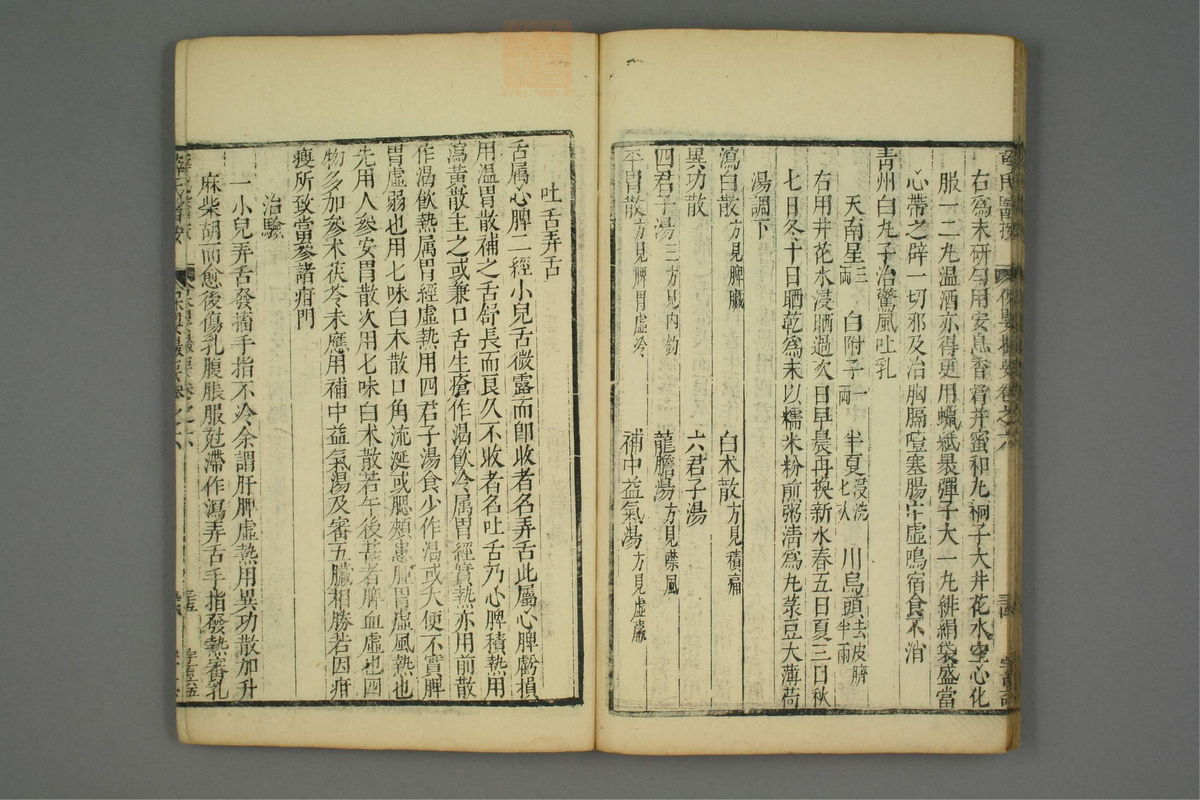 右為末研勻用安息香膏并蜜和丸桐子大井花水空心化
服一二丸温酒亦得更用蠟紙裹彈子大一丸緋絹袋盛當
心帶之辟一切邪及治胸膈噎塞腸中虛鳴宿食不消
青州白丸子治驚風吐乳
天南星三兩 白附子一兩 半夏浸洗七次 川烏頭去皮臍半兩
右用井花水浸晒過次日早晨再換新水春五日夏三日秋
七日冬十日晒乾為末以糯米粉煎粥清為丸菉豆大薄荷
湯調下
瀉白散方見脾臟 白朮散方見積痛
異功散 六君子湯
四君子湯三方見內釣 龍膽湯方見噤風
平胃散方見脾胃虛冷 補中益氣湯方見虛羸
吐舌弄舌
舌屬心脾二經小兒舌微露而卽收者名弄舌此屬心脾虧損
用温胃散補之舌舒長而良久不收者名吐舌乃心脾積熱用
瀉黃散主之或兼口舌生瘡作渴飲冷屬胃經實熱亦用前散
作渴飲熱屬胃經虛熱用四君子湯食少作渴或大便不實脾
胃虛弱也用七味白朮散口角流涎或腮頰患腫胃虛風熱也
先用人參安胃散次用七味白朮散若午後甚者脾血虛也四
物多加參朮茯苓未應用補中益氣湯及審五臟相勝若因疳
瘦所致當參諸疳門
治驗
一小兒弄舌發搐手指不冷余謂肝脾虛熱用異功散加升
麻柴胡而愈後傷乳腹脹服尅滯作瀉弄舌手指發熱審乳